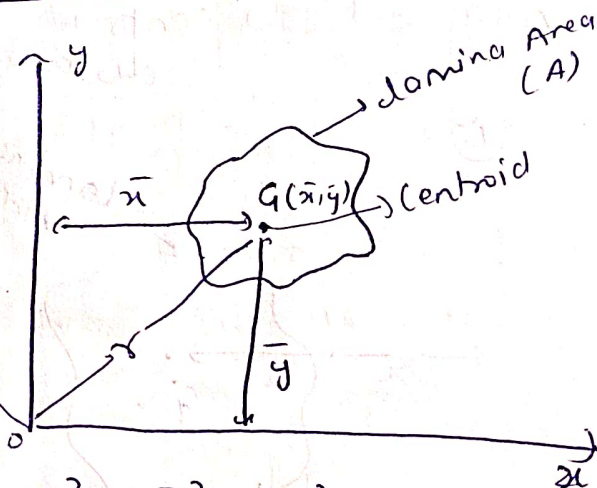 y
lamina Area
(A)
x̄
G(x̄,ȳ)
Centroid
r
ȳ
O
x